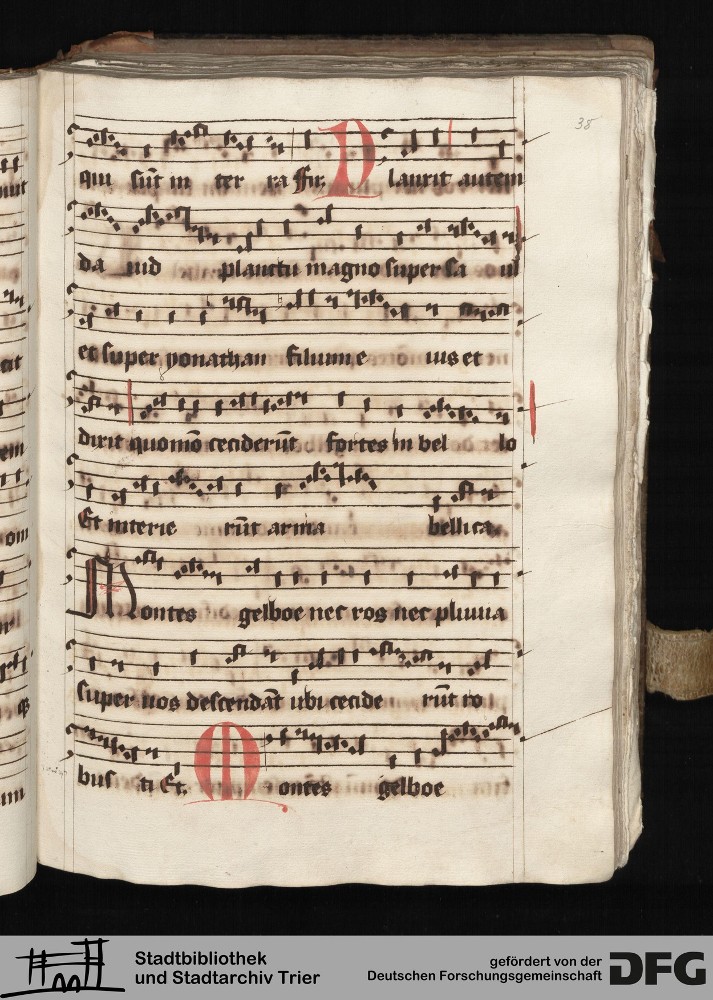 38
qui sūt in ter ra Fir. Plauxit autem
da uid planctu magno super sa ul
et super yonathan filium e ius et
dixit quomō ceciderūt fortes in bel lo
Et interie rūt arma bellica.
Montes gelboe nec ros nec pluuia
super uos descendāt ubi cecide rūt ro
bus ti Et. Montes gelboe
Stadtbibliothek
und Stadtarchiv Trier
gefördert von der
Deutschen Forschungsgemeinschaft
DFG